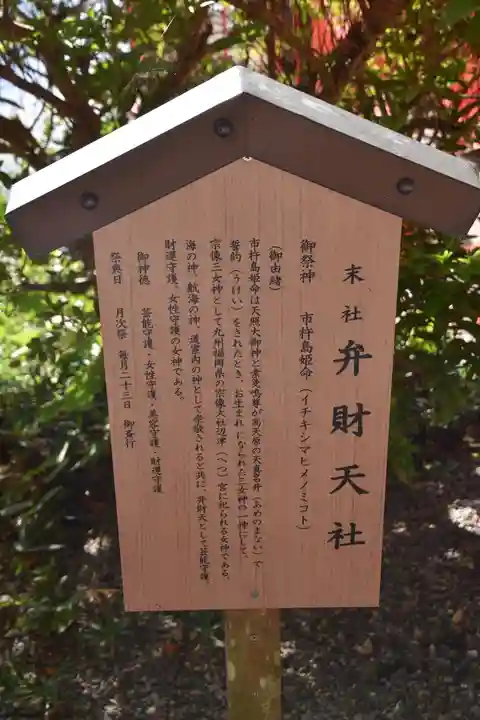 末社 弁財天社
御祭神 市杵島姫命（イチキシマヒメノミコト）
（御由緒）
市杵島姫命は天照大御神と素戔鳴尊が高天原の天真名井（あめのまない）で
誓約（うけい）をされたとき、お生まれになられた三女神の一神にして、
宗像三女神として九州福岡県の宗像大社辺津（へつ）宮に祀られる女神である。
海の神、航海の神、道案内の神として崇敬されると共に、弁財天として芸能守護、
財運守護、女性守護の女神である。
御神徳 芸能守護・女性守護・美容守護・財運守護
祭典日 月次祭 毎月二十三日 御斎行